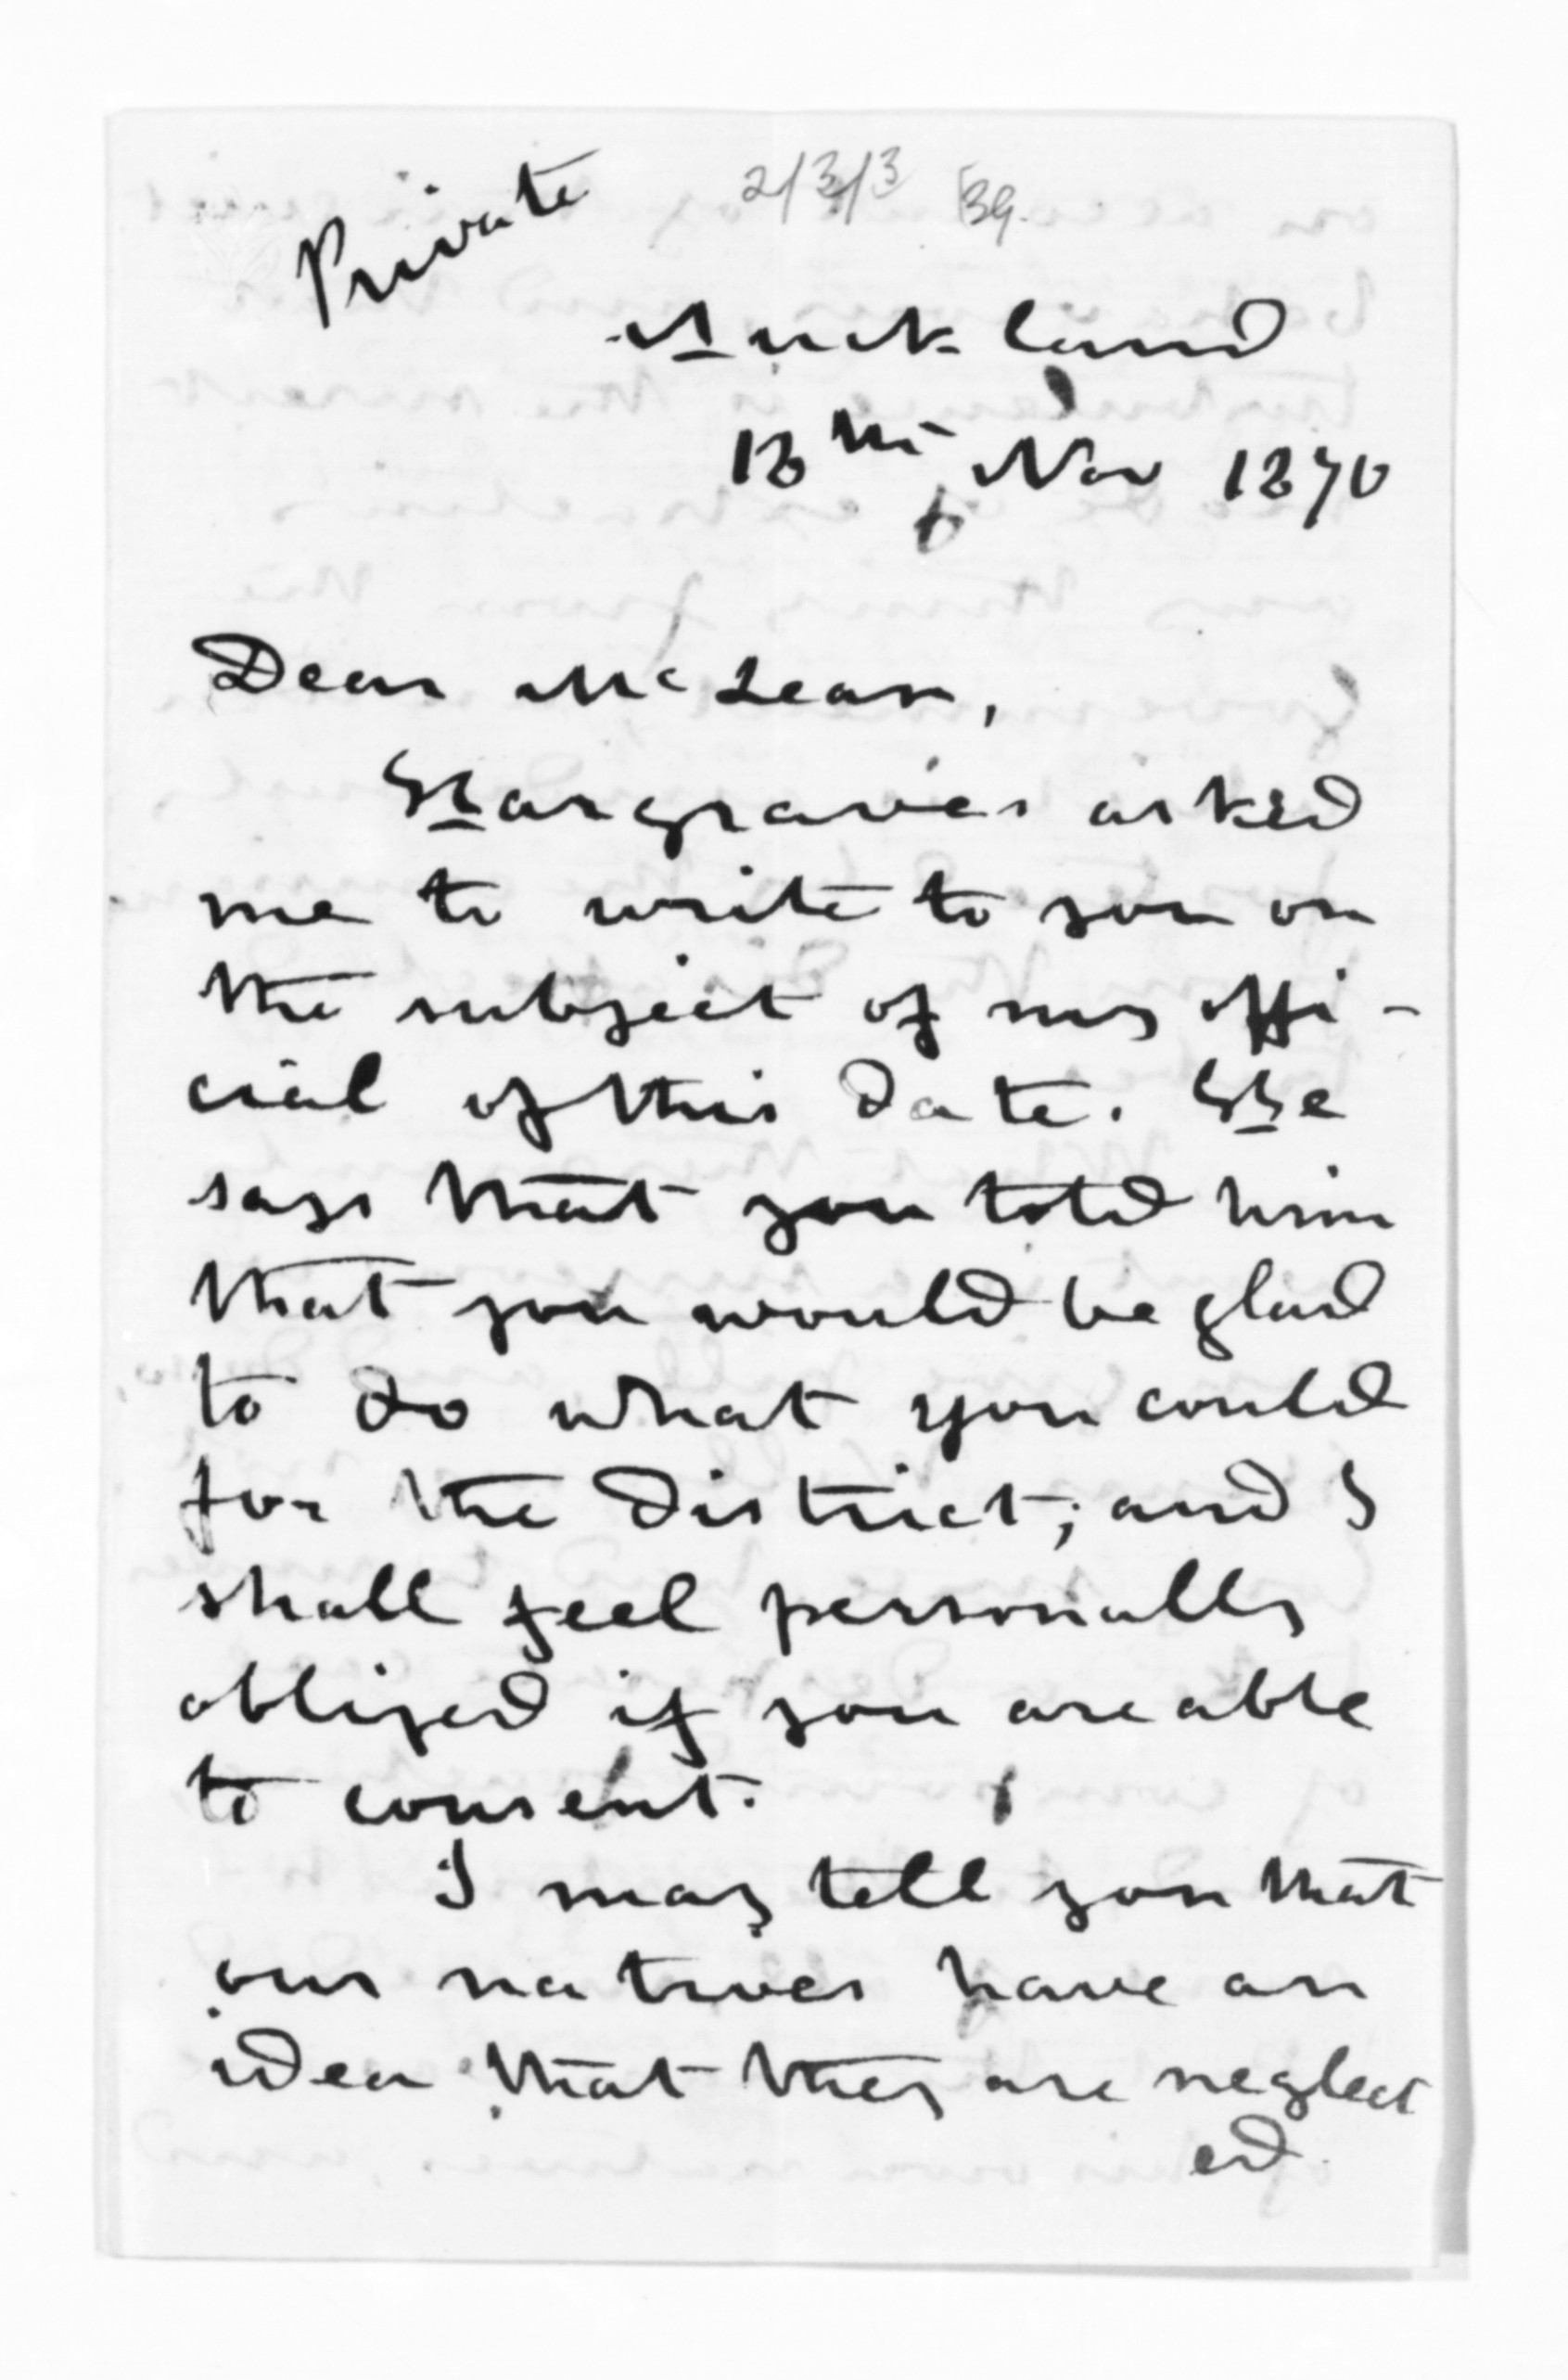 Private
2/3/3 Bg.
Auckland
18th Nov 1870
Dear McLean,
Hargraves asked
me to write to you on
the subject of my offi-
cial of this date. He
says that you told him
that you would be glad
to do what you could
for the District; and I
shall feel personally
obliged if you are able
to consent.
I may tell you that
our natives have an
idea that they are neglect
ed